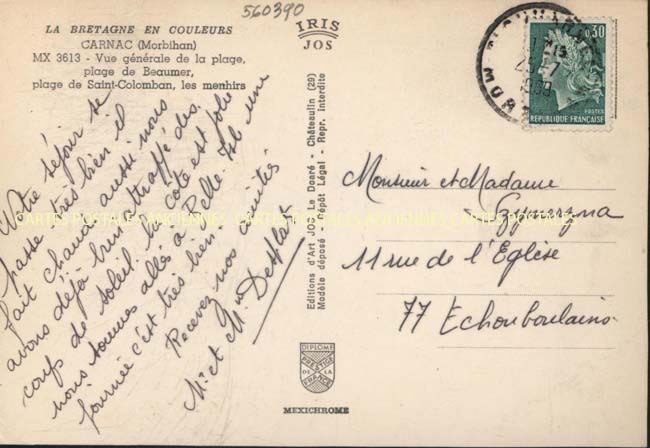 560390
LA BRETAGNE EN COULEURS
CARNAC (Morbihan)
MX 3613 - Vue générale de la plage,
plage de Beaumer,
plage de Saint-Colomban, les menhirs
IRIS
JOS
0,30
POSTES
REPUBLIQUE FRANÇAISE
Notre séjour se
passe très bien il
fait chaud aussi nous
avons déjà bien attrapé des
coups de soleil. La côte est jolie
nous sommes allés à Belle-Isle une
journée c'est très bien.
Recevez nos amitiés
Mr et Mme Desplat
Editions d'Art JOS Le Doaré - Châteaulin (29)
Modèle déposé - Dépôt Légal - Repr. Interdite
Monsieur et Madame
11 rue de l'Eglise
77 Echouboulains
CARTES POSTALES ANCIENNES CARTES POSTALES ANCIENNES CARTES POSTALES
DIPLOME
PRESTIGE
DE LA
FRANCE
MEXICHROME